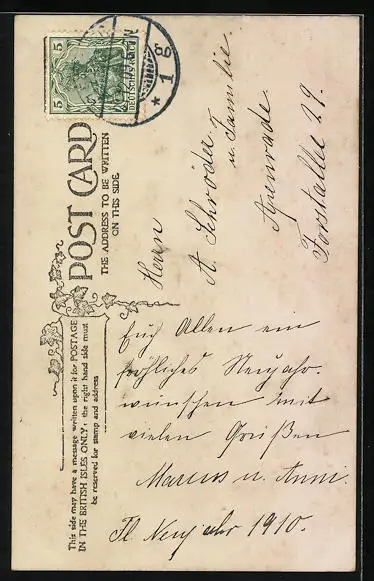 5
5
DEUTSCHES REICH
1
POST CARD
THE ADDRESS TO BE WRITTEN
ON THIS SIDE
This side may have a message written upon it for POSTAGE
IN THE BRITISH ISLES ONLY, the right hand side must
be reserved for stamp and address
Herrn
A. Schröder
u. Familie.
Apenrade
Forstallee 29.
Euch Allen ein
fröhliches Neujahr
wünschen mit
vielen Grüßen
Marcus u. Anni.
Fl Neujahr 1910.